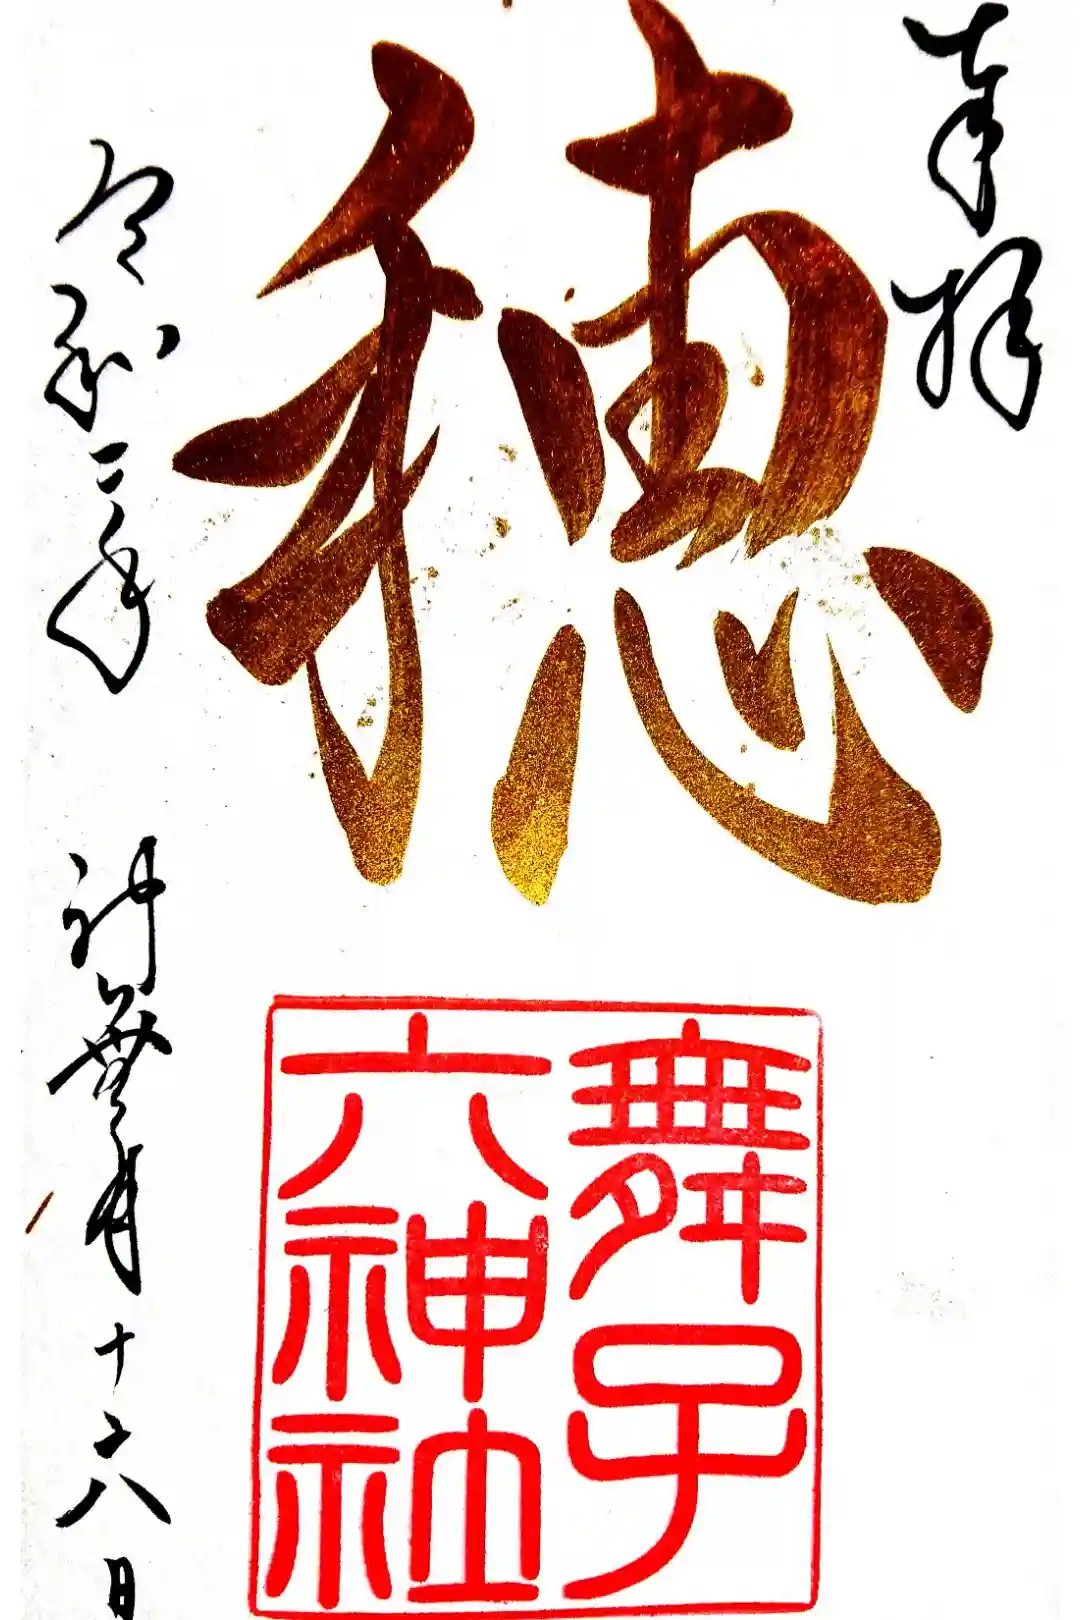 奉拝
穂
舞子
六神社
令和三年 神無月十六日